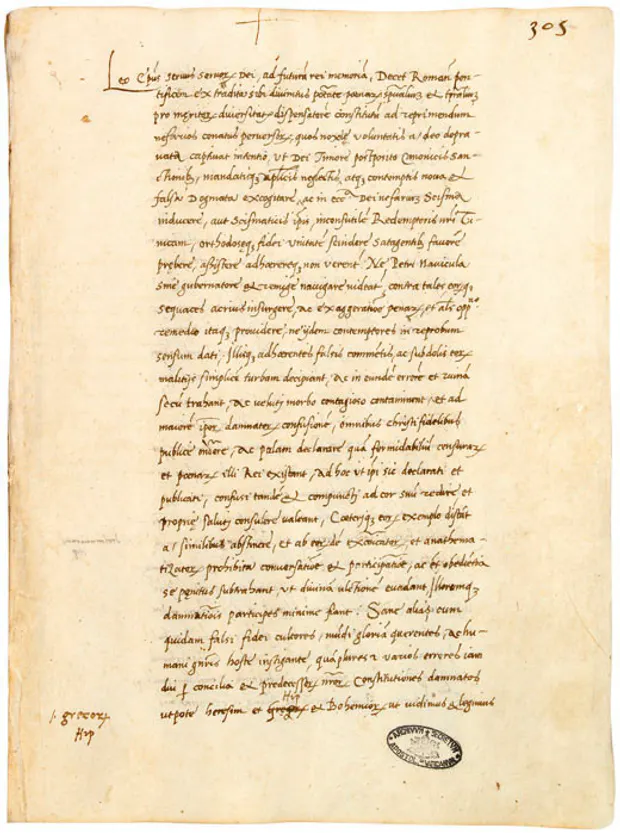 305
Leo Ep͂us servus servoꝝ Dei, ad futurā rei memoriā, Decet Romanū pon-
tificem ex tradita sibi divinitus potāte poenaꝝ spūaliuꝫ et tp̄raliuꝫ
pro meritoꝝ diversitate dispensatorē constitutū ad reprimendum
nefarios conatus perversoꝝ, quos noxiȩ voluntatis adeo depra-
vata captivat intentio, ut Dei timore postposito Canonicis san-
ctionib, mandatisqꝫ ap̄licis neglectis, atqꝫ contemptis nova et
falsa Dogmata excogitare, ac in eccā Dei nefarium Scisma
inducere, aut Scismaticis ipīs, inconsutilē Redemptoris nr̄i Tu-
nicam, orthodoxȩqꝫ fidei unitatē scindere satagentib, favorē
prȩbere, assistere adhaerereqꝫ non verent̄. Ne Petri Navicula
sine gubernatore et remige navigare videat̄, contra tales eorqꝫ
sequaces acrius insurgere, ac exaggeratioē penaꝝ, et als̄ oppno
remedio itaqꝫ providere, ne ijdem contemptores in reprobum
sensum dati, Illisqꝫ adhaerentes falsis commentis, ac subdolis eoꝝ
malitijs simplicē turbam decipiant, ac in eundē errorē et ruinā
secū trahant, ac veluti morbo contagioso contaminent, et ad
maiorē ipoꝝ damnatoꝝ confusionē, omnibus Christi fidelibus
publice ondere, ac palam declarare quā formidabiliū censuraꝝ
et poenaꝝ illi Rei existant, ad hoc ut ipi sic declarati et
publicati, confusi tandē et compuncti ad cor suū redire et
propriȩ saluti consulere valeant, Coeteriqꝫ eoꝝ exemplo discāt
a similibus abstinere, et ab eoꝝdē excōicatoꝝ, et anathema-
tizatoꝝ prohibita conversatioē et participatioē, ac et obedientia
se penitus subtrahant, ut divinā ultionē evadant, Illorumqꝫ
damnatiois participes minime fiant. Sane alias cum
quidam falsi fidei cultores, mūdi gloriā querentes, ac hu-
mani gn̄ris hoste instigante, quāplures et varios errores iam
diu ꝑ concilia et predecessoꝝ nr̄oꝝ Constitutiones damnatos
Hip
utpote heresim et grecoꝝ et Bohemioꝝ, ut vidimus et legimus
/. grecorꝝ
Hip
ARCHIVVM SECRETVM
APOSTOL. VATICANVM